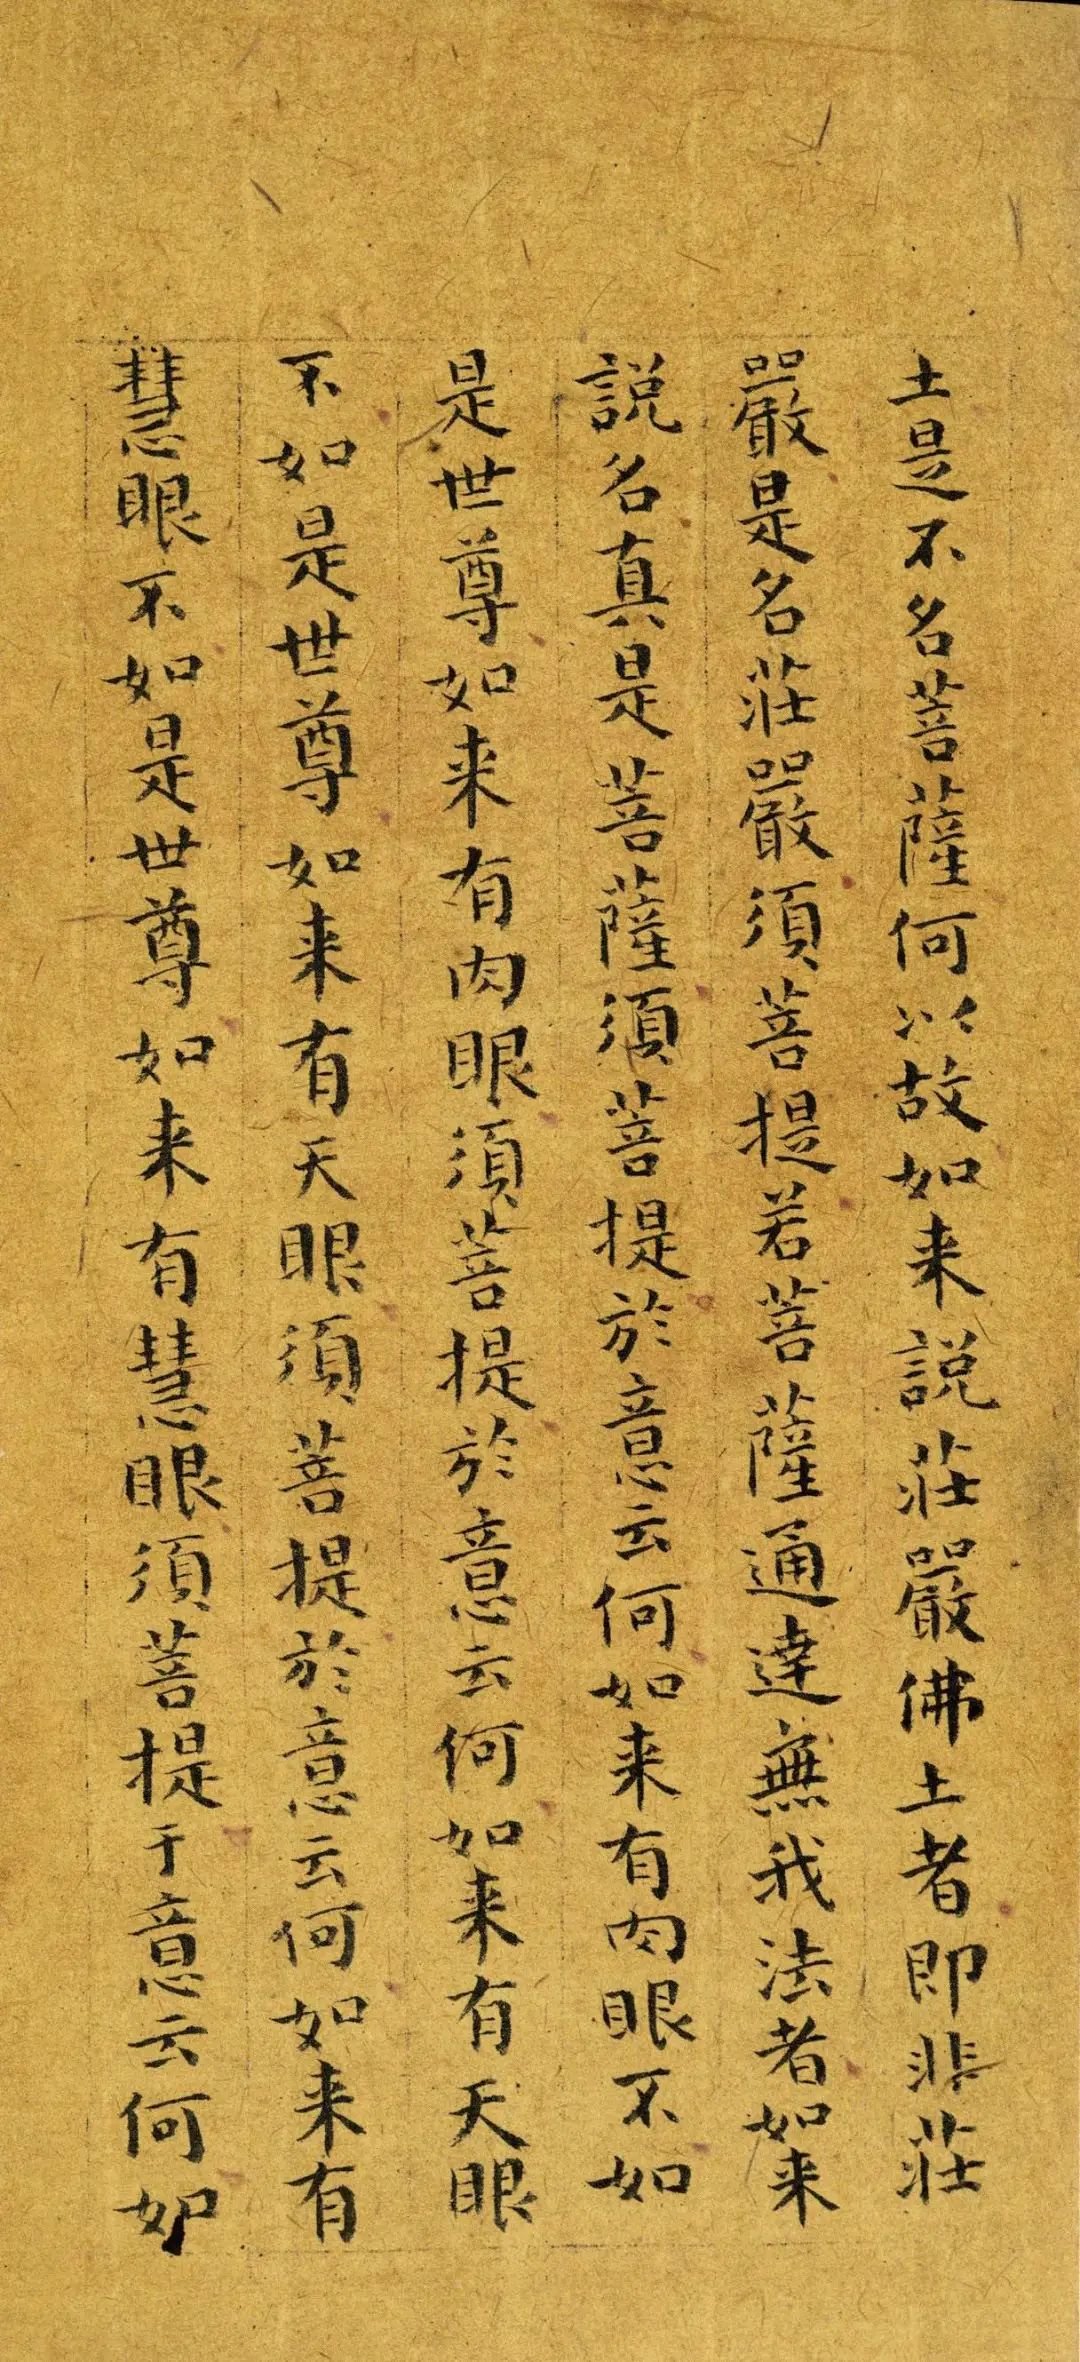 土是不名菩薩何以故如来説莊嚴佛土者即非莊
嚴是名莊嚴須菩提若菩薩通達無我法者如来
説名真是菩薩須菩提於意云何如来有肉眼不如
是世尊如来有肉眼須菩提於意云何如来有天眼
不如是世尊如来有天眼須菩提於意云何如来有
慧眼不如是世尊如来有慧眼須菩提于意云何如